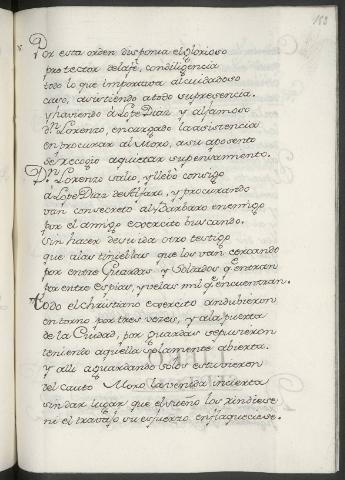 183
Por esta orden disponia el glorioso
protector de la fè, con diligencia
todo lo que importava al cuidadoso
caso, asistiendo a todo su presencia.
y haviendo á Lope Diaz y al famoso
Dn. Lorenzo, encargado la asistencia
en procurar al Moro, a su aposento
se recogio a quietar su pensamiento.
Dn. Lorenzo salio, y llebò consigo
á Lope Diaz de Alfaro, y procurando
van con secreto al barbaro enemigo
por el amigo exercito buscando.
sin hacer de su ida otro testigo
que a las tinieblas que los van cercando
por entre Guardas y Soldados q entran
por entre espias, y velas mil q encuentran.
todo el christiano exercito andubieron
en torno por tres vezes, y a la puerta
de la Ciudad, por guardar se pusieron
teniendo aquella solamente abierta.
y alli aguardando solos estubieron
del cauto Moro la venida incierta
sin dar lugar que el sueño los rindiese
ni el travajo su esfuerzo enflaqueciese.